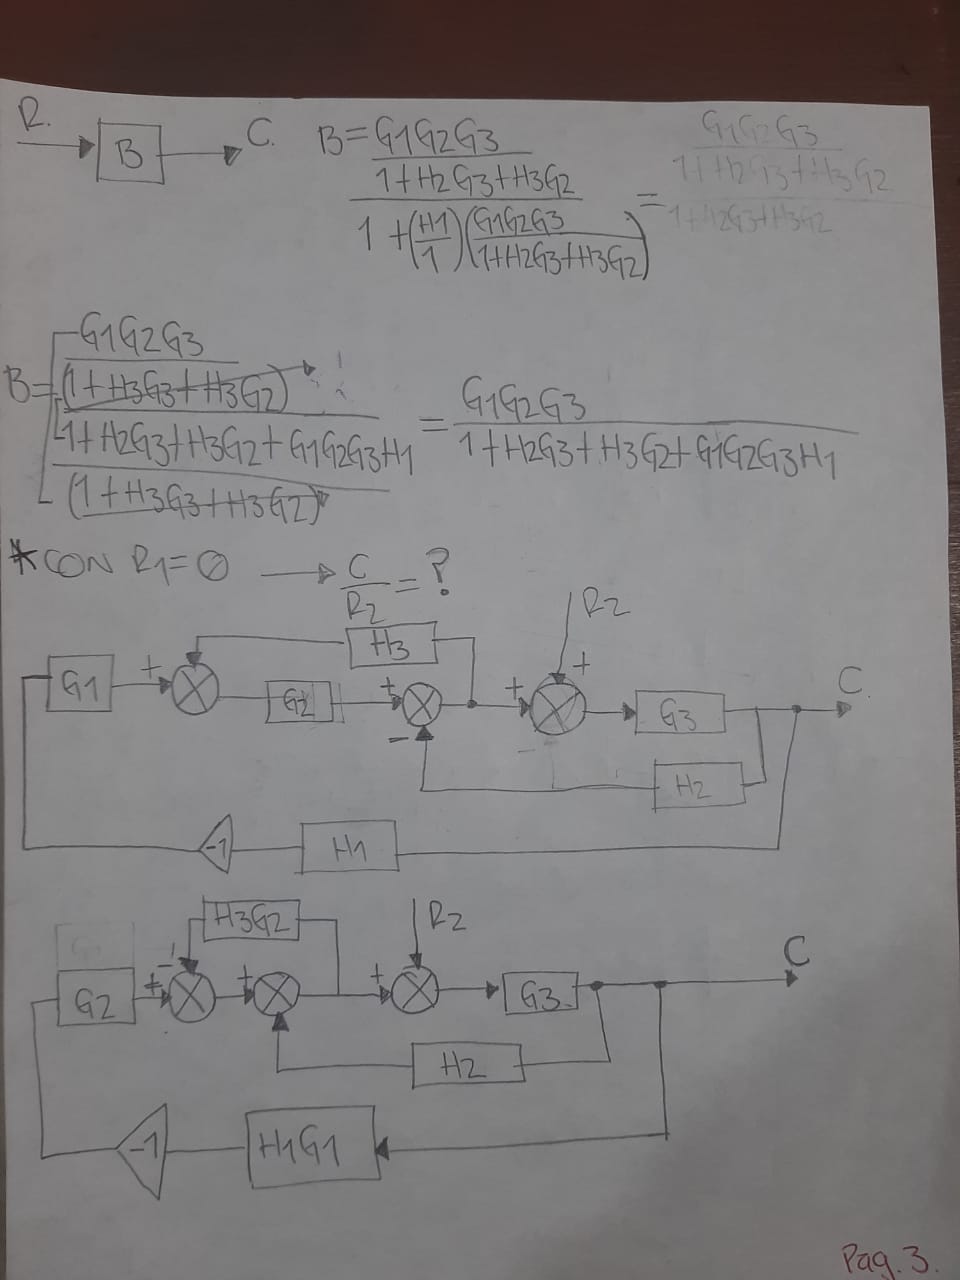 R. B C. B = G1G2G3 / 1+H2G3+H3G2 / 1+(H1/1)(G1G2G3 / 1+H2G3+H3G2) = G1G2G3 / 1+H2G3+H3G2 / 1+H2G3+H3G2
B = G1G2G3 / (1+H3G3+H3G2) / 1+H2G3+H3G2+G1G2G3H1 / (1+H3G3+H3G2) = G1G2G3 / 1+H2G3+H3G2+G1G2G3H1
*CON R1=0 → C/R2 = ?
H3 R2
G1 + G2 + + + G3 C.
- -
H2
-1 H1
H3G2 R2
G2 + - + + G3 C
H2
-1 H1G1
Pag. 3.